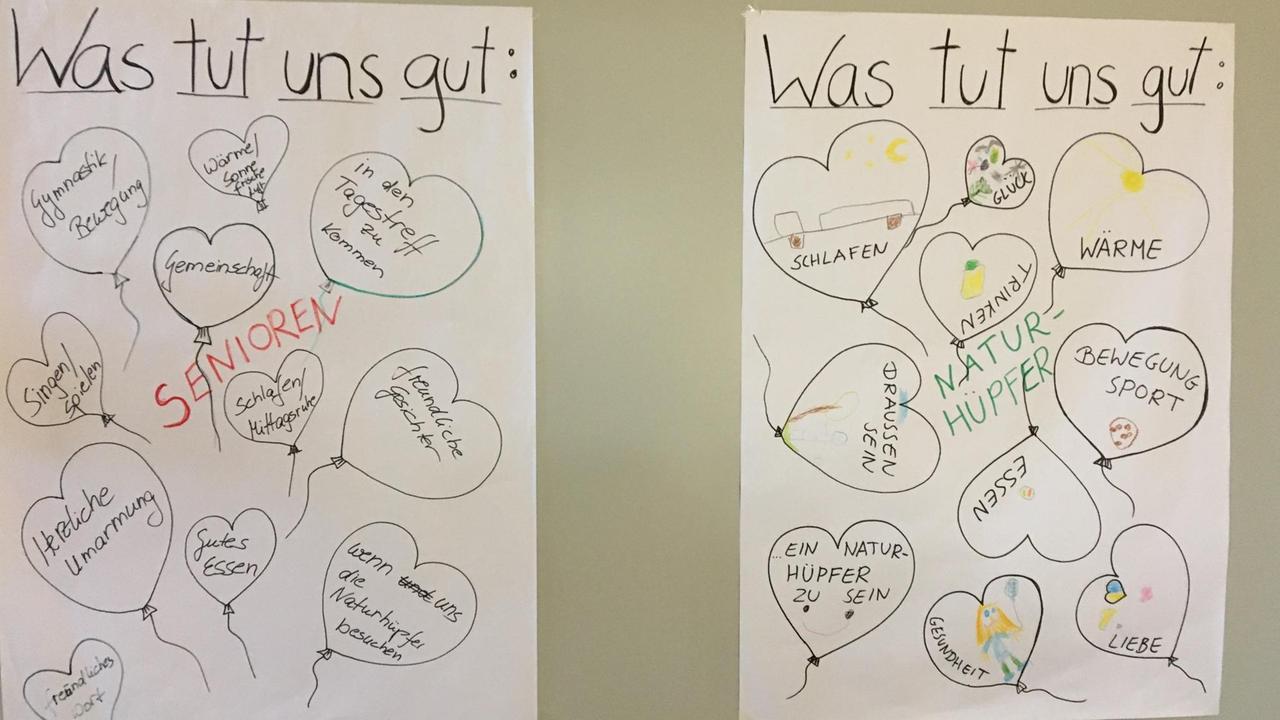 Was tut uns gut:
Gymnastik/
Bewegung
Wärme/
Sonne
frische
Luft
in den
Tagestreff
zu
kommen
Gemeinschaft
SENIOREN
Singen/
Spielen
Schlafen/
Mittagsruhe
freundliche
Gesichter
Herzliche
Umarmung
Gutes
Essen
wenn uns
die
Naturhüpfer
besuchen
freundliches
Wort
Was tut uns gut:
SCHLAFEN
GLÜCK
WÄRME
TRINKEN
NATUR-
HÜPFER
DRAUSSEN
SEIN
BEWEGUNG
SPORT
ESSEN
...EIN NATUR-
HÜPFER
ZU SEIN
GESUNDHEIT
LIEBE